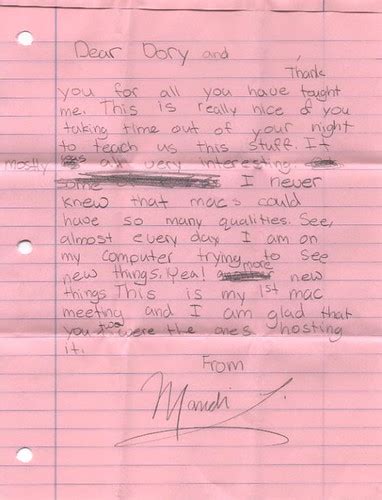 Dear Dory and
Thank
you for all you have taught
me. This is really nice of you
taking time out of your night
to teach us this stuff. It
mostly all very interesting.
some I never
knew that macs could
have so many qualities. See,
almost every day I am on
my computer trying to see
new things. Yea! more new
things This is my 1st mac
meeting and I am glad that
you too were the ones hosting
it.
From
Mandi J.